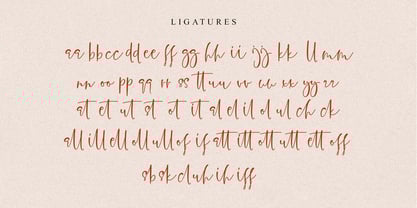 LIGATURES
aa bb cc dd ee ff gg hh ii jj kk ll mm
nn oo pp qq rr ss tt uu vv ww xx yy zz
at et ut st ot it al el il ol ul ch ck
all ill ell oll ull of if att itt ott utt ett off
sb sk duh ih iff